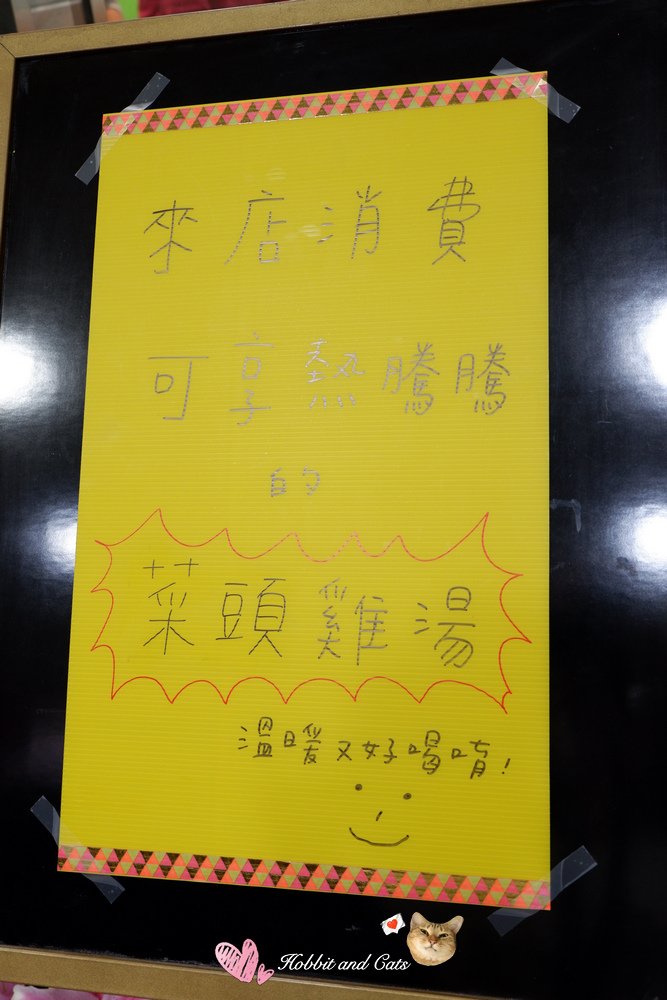 來店消費
可享熱騰騰
的
菜頭雞湯
溫暖又好喝唷!
Hobbit and Cats